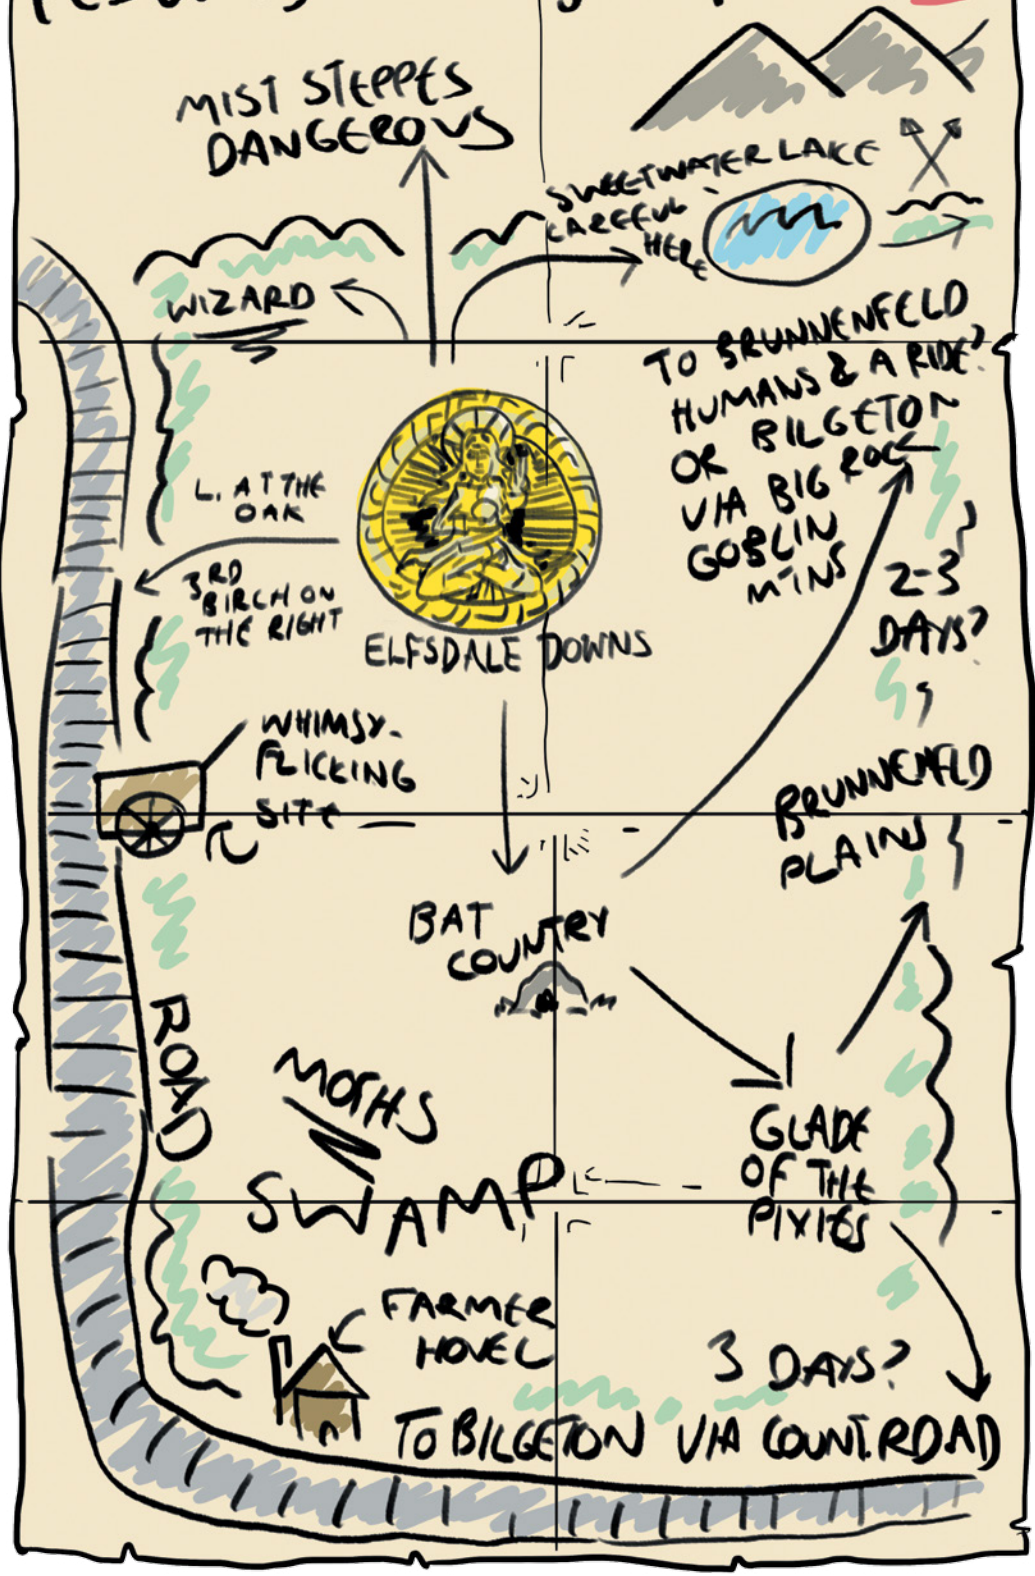 MIST STEPPES
DANGEROUS
SWEETWATER LAKE
CAREFUL
HERE
WIZARD
TO BRUNNENFELD
HUMANS & A RIDE?
OR BILGETON
VIA BIG ROC
GOBLIN
MTNS
L. AT THE
OAK
3RD
BIRCH ON
THE RIGHT
2-3
DAYS?
ELFSDALE DOWNS
WHIMSY-
FLICKING
SITE
BRUNNENFELD
PLAINS
BAT
COUNTRY
ROAD
MOTHS
SWAMP
GLADE
OF THE
PIXIES
FARMER
HOVEL
3 DAYS?
TO BILGETON VIA COUNT. ROAD